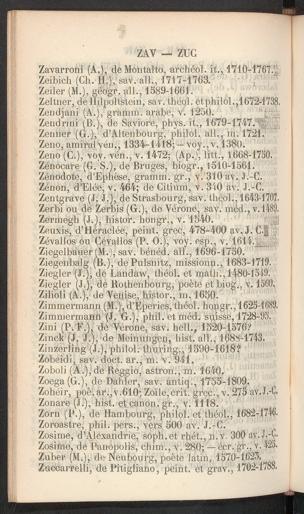 ZAV — ZUC
Zavarroni (A.), de Montalto, archéol. it., 1710-1767.
Zeibich (Ch. H.), sav. all., 1717-1763.
Zeiler (M.), géogr. all., 1589-1661.
Zeltner, de Hilpoltstein, sav. théol. et philol., 1672-1738.
Zendjani (A.), gramm. arabe, v. 1250.
Zendrini (B.), de Saviore, phys. it., 1679-1747.
Zenner (G.), d'Altenbourg, philol. all., m. 1721.
Zeno, amiral vén., 1334-1418; — voy., v. 1380.
Zeno (C.), voy. vén., v. 1472; (Ap.), litt., 1668-1750.
Zénocare (G. S.), de Bruges, biogr., 1510-1561.
Zénodote, d'Ephèse, gramm. gr., v. 310 av. J.-C.
Zénon, d'Elée, v. 464; de Citium, v. 340 av. J.-C.
Zentgrave (J. J.), de Strasbourg, sav. théol., 1643-1707.
Zerbi ou de Zerbis (G.), de Vérone, sav. méd., v. 1489.
Zermegh (J.), histor. hongr., v. 1540.
Zeuxis, d'Héraclée, peint. grec, 478-400 av. J. C.
Zévallos ou Cévallos (P. O.), voy. esp., v. 1614.
Ziegelbauer (M.), sav. bénéd. all., 1696-1750.
Ziegenbalg (B.), de Pulsnitz, mission., 1683-1719.
Ziegler (J.), de Landaw, théol. et math., 1480-1549.
Ziegler (J.), de Rothenbourg, poëte et biog., v. 1560.
Zilioli (A.), de Venise, histor., m. 1650.
Zimmermann (M.), d'Eperies, théol. hongr., 1625-1689.
Zimmermann (J. G.), phil. et méd. suisse, 1728-95.
Zini (P. F.), de Vérone, sav. hell., 1520-1576?
Zinck (J. J.), de Meinungen, hist. all., 1688-1743.
Zinzerling (J.), philol. thuring., 1590-1618?
Zobeidi, sav. doct. ar., m. v. 941.
Zoboli (A.), de Reggio, astron., m. 1640.
Zoega (G.), de Dahler, sav. antiq., 1755-1809.
Zoheir, poë. ar., v. 610; Zoïle, crit. grec., v. 275 av. J.-C.
Zonare (J.), hist. et canon. gr., v. 1118.
Zorn (P.), de Hambourg, philol. et théol., 1682-1746.
Zoroastre, phil. pers., vers 500 av. J.-C.
Zosime, d'Alexandrie, soph. et rhét., n. v. 300 av. J.-C.
Zosime, de Panopolis, chim., v. 280; — écr. gr., v. 425.
Zuber (M.), de Neubourg, poëte latin, 1570-1623.
Zuccarelli, de Pitigliano, peint. et grav., 1702-1788.